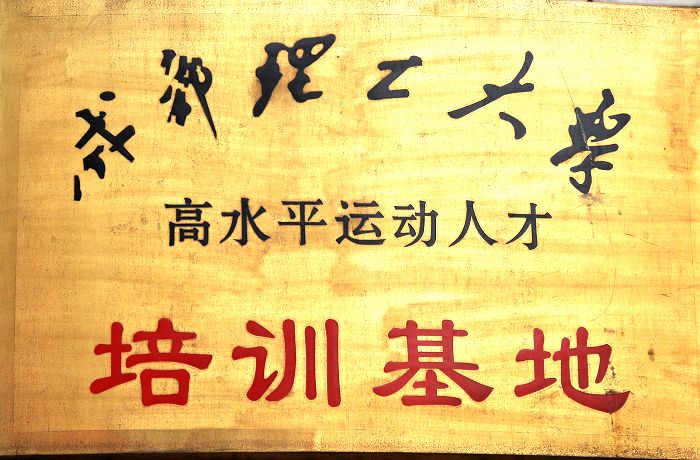 武漢理工大学
高水平运动人才
培训基地